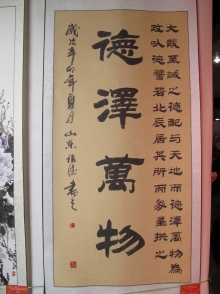 大哉至誠之德配与天地而德澤萬物為
政以德譬若北辰居其所而众星拱之
德澤萬物
歲次辛卯年夏月山东書之